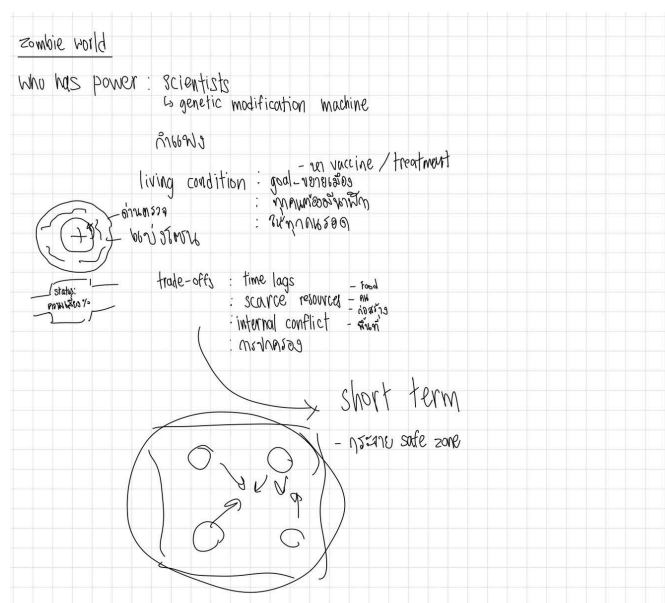 zombie world
who has power : scientists
↳ genetic modification machine
กำแพง
living condition : goal - หา vaccine / treatment
- ขยายเมือง
: ทุกคนต้องมีนาฬิกา
: ให้ทุกคนรอด
ด่านตรวจ
แบ่งโซน
status:
ความเสี่ยง %
trade-offs : time lags
: scarce resources - food
- คน
- ก่อสร้าง
- พื้นที่
: internal conflict
: การปกครอง
short term
- กระจาย safe zone